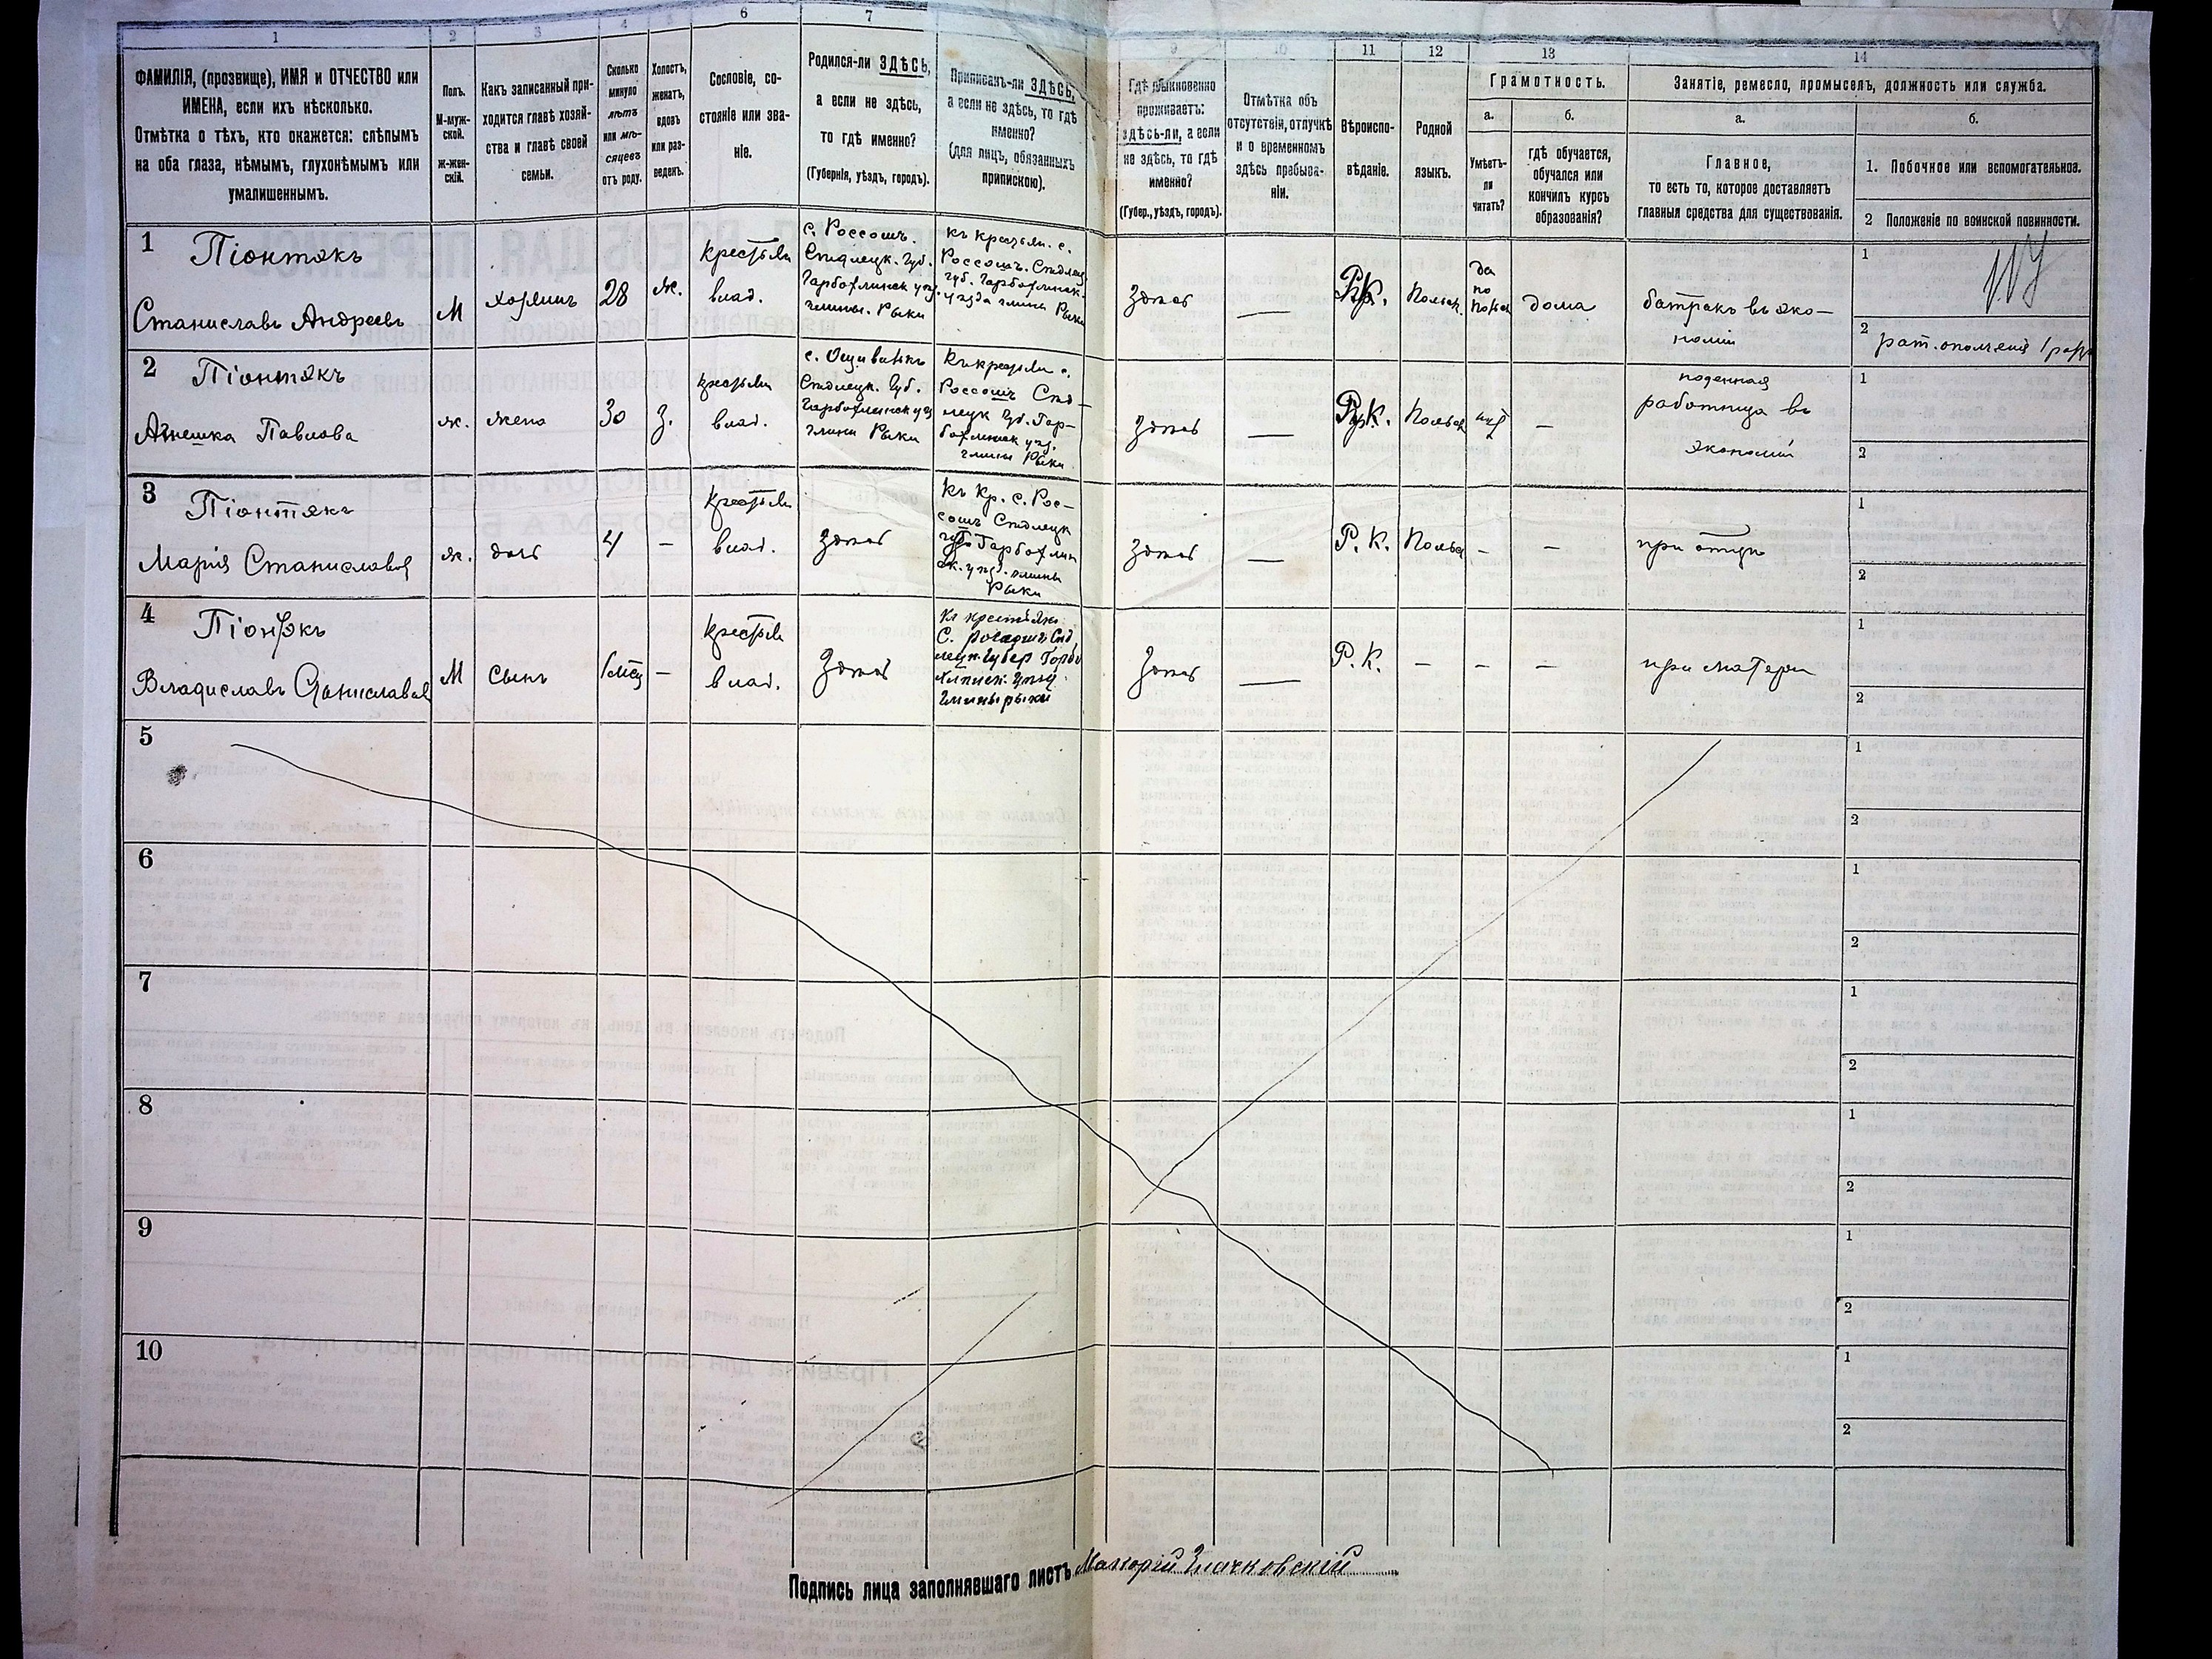 1
2
3
4
5
6
7
9
10
11
12
13
14
ФАМИЛІЯ, (прозвище), ИМЯ и ОТЧЕСТВО или
ИМЕНА, если ихъ нѣсколько.
Отмѣтка о тѣхъ, кто окажется: слѣпымъ
на оба глаза, нѣмымъ, глухонѣмымъ или
умалишеннымъ.
Полъ.
М-муж-
ской.
ж-жен-
скій.
Какъ записанный при-
ходится главѣ хозяй-
ства и главѣ своей
семьи.
Сколько
минуло
лѣтъ
или мѣ-
сяцевъ
отъ роду.
Холостъ,
женатъ,
вдовъ
или раз-
веденъ.
Сословіе, со-
стояніе или зва-
ніе.
Родился-ли ЗДѢСЬ,
а если не здѣсь,
то гдѣ именно?
(Губернія, уѣздъ, городъ).
Приписанъ-ли ЗДѢСЬ,
а если не здѣсь, то гдѣ
именно?
(для лицъ, обязанныхъ
припискою).
Гдѣ обыкновенно
проживаетъ:
здѣсь-ли, а если
не здѣсь, то гдѣ
именно?
(Губер., уѣздъ, городъ).
Отмѣтка объ
отсутствіи, отлучкѣ
и о временномъ
здѣсь пребыва-
ніи.
Вѣроиспо-
вѣданіе.
Родной
языкъ.
Грамотность.
а.
Умѣетъ-
ли
читать?
б.
гдѣ обучается,
обучался или
кончилъ курсъ
образованія?
Занятіе, ремесло, промыселъ, должность или служба.
а.
Главное,
то есть то, которое доставляетъ
главныя средства для существованія.
б.
1. Побочное или вспомогательное.
2 Положеніе по воинской повинности.
1
Піонтэкъ
Станиславъ Андреевъ
М
хозяинъ
28
ж.
крестьян
влад.
с. Россошъ.
Сѣдлецк. Губ.
Гарволинск уѣз.
гмины. Рыки
къ крестьян. с.
Россошъ. Сѣдлец
губ. Гарволинск.
уѣзда гмины Рыки
Здѣсь
—
Р.К.
Польск.
да
по
Польск
дома
батракъ въ эко-
номіи
1
2 рат. ополченія 1 разр
2
Піонтэкъ
Агнешка Павлова
ж.
жена
30
З.
крестьян
влад.
Сѣдлецк. Губ.
Гарволинск уѣз
гмини Рыки
Къ крестьян с.
Россошъ Сѣд-
лецк Губ. Гар-
волинск уѣз.
гмины Рыки
Здѣсь
—
Р.К.
Польск
нѣт
—
поденная
работница въ
экономіи
1
2
3
Піонтэкъ
Марія Станиславов
ж.
дочь
4
-
крестьян
влад.
Здѣсь
къ Кр. с. Рос-
сошъ Сѣдлецк
губ Гарволин
ск. уѣзд. гмины
Рыки
Здѣсь
—
Р. К.
Польск
-
-
при отцѣ
1
2
4
Піонтэкъ
Владиславъ Станиславов
М
сынъ
1 мѣс
-
крестьян
влад.
Здѣсь
Къ крестьян
С. росошъ Сѣд
лецк. Губер Горво
линск. Уѣзд.
Гмины рыки
Здѣсь
—
Р. К.
-
-
-
при матери
1
2
5
1
2
6
1
2
7
1
2
8
1
2
9
1
2
10
1
2
Подпись лица заполнявшаго листъ